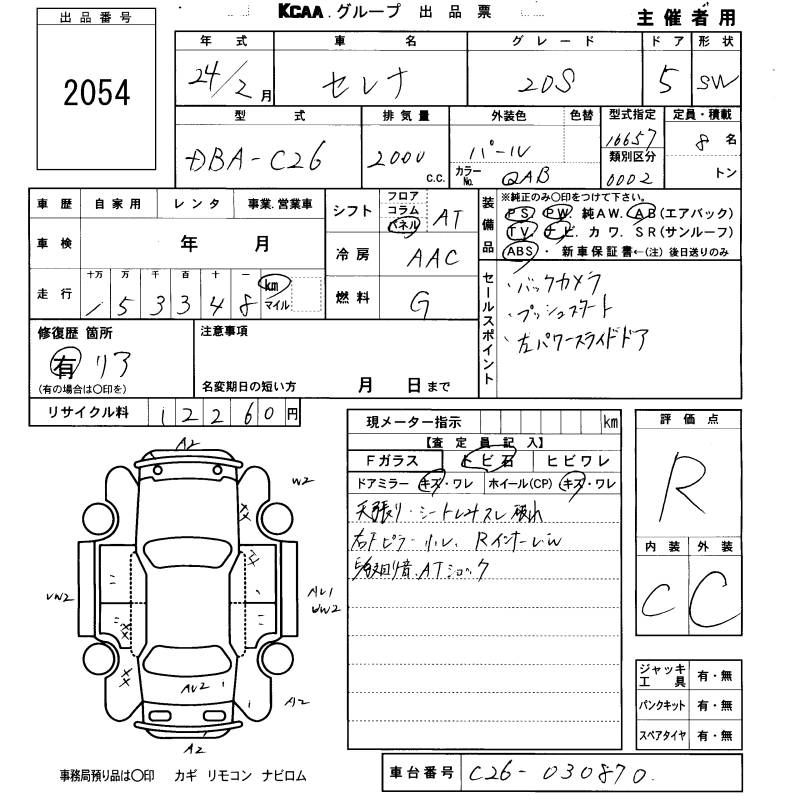 KCAA.グループ 出品票
主催者用
出品番号
2054
年式 車名 グレード ドア 形状
24/2月 セレナ 20S 5 SW
型式 排気量 外装色 色替 型式指定 定員・積載
DBA-C26 2000 c.c. パール 16657 8名
カラーNo. QAB 類別区分 0002 トン
車歴 自家用 レンタ 事業.営業車
車検 年 月
走行 十万 万 千 百 十 一
1 5 3 3 4 8 km マイル
シフト フロア コラム パネル AT
冷房 AAC
燃料 G
装備品
※純正のみ〇印をつけて下さい。
PS PW 純AW. AB(エアバック)
TV ナビ. カワ. SR(サンルーフ)
ABS ・ 新車保証書←(注) 後日送りのみ
セールスポイント
・バックカメラ
・プッシュスタート
・左パワースライドドア
修復歴 箇所
有 リア
(有の場合は〇印を)
注意事項
名変期日の短い方 月 日まで
リサイクル料 12260円
現メーター指示 km
【査定員記入】
Fガラス トビ石 ヒビワレ
ドアミラー キズ・ワレ ホイール(CP) キズ・ワレ
天張り・シートシミスレ破れ
評価点
R
内装 外装
C C
A2
W2
UW2
AU1
UW2
AU2
A2
A2
ジャッキ工具 有・無
パンクキット 有・無
スペアタイヤ 有・無
事務局預り品は〇印 カギ リモコン ナビロム
車台番号 C26-030870.